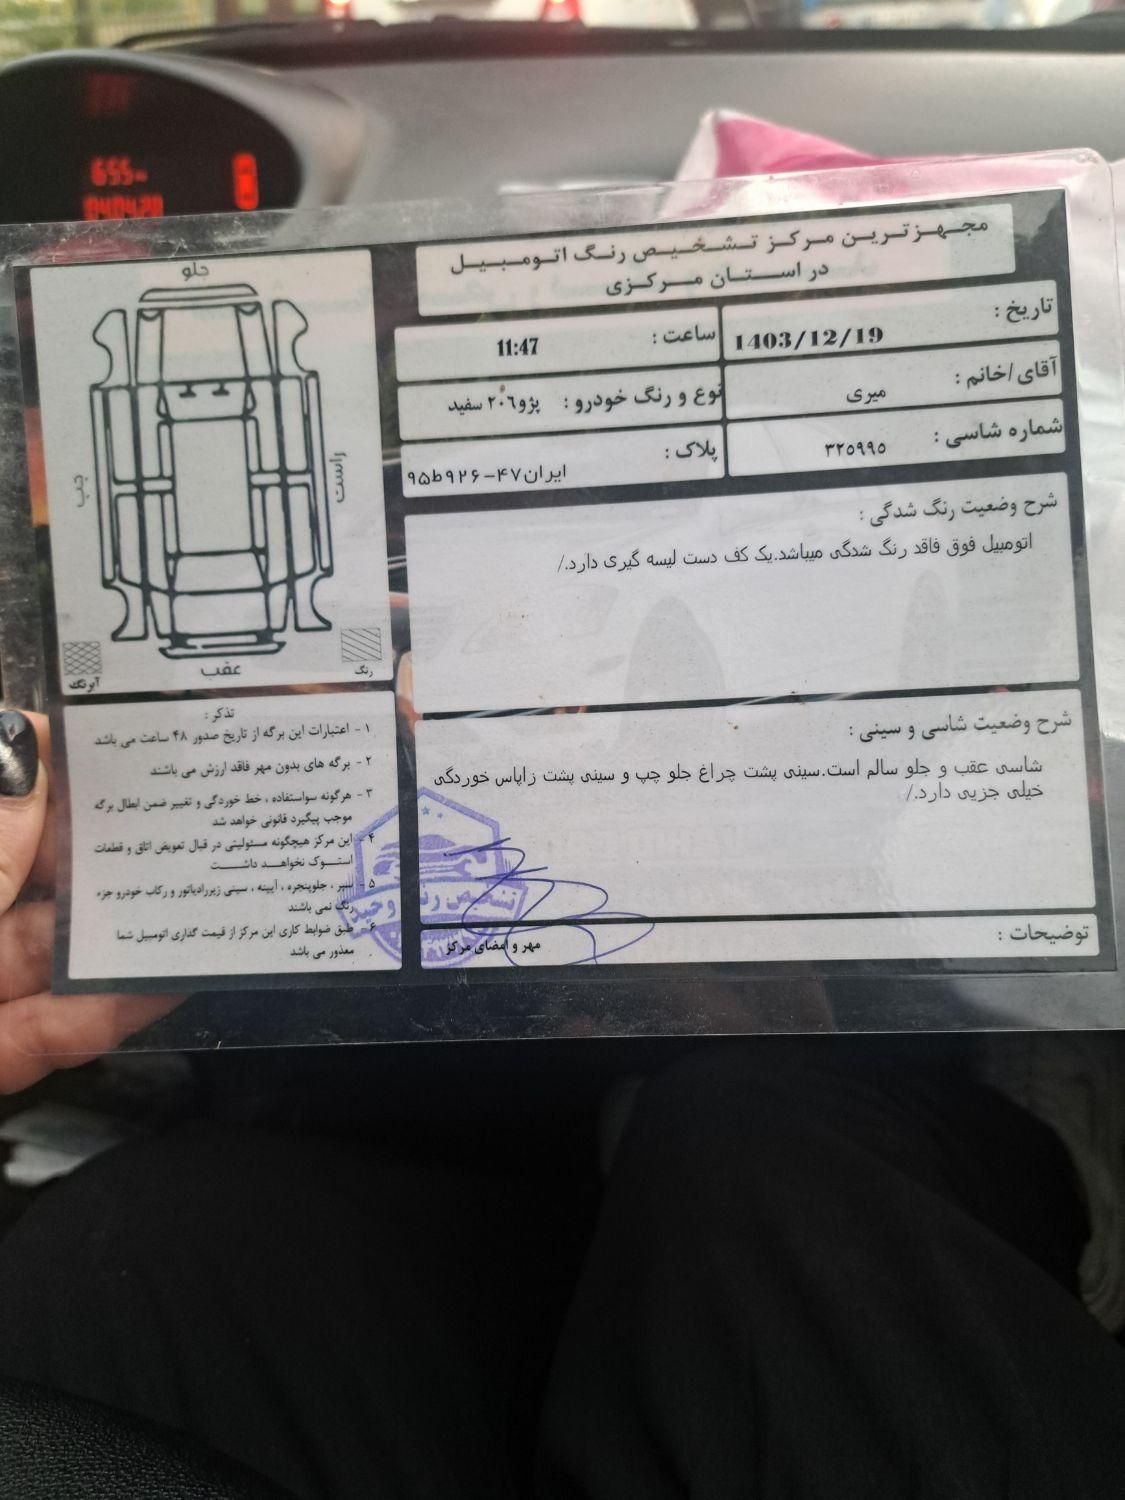 مجهزترین مرکز تشخیص رنگ اتومبیل
در استان مرکزی
تاریخ : 1403/12/19
ساعت : 11:47
آقای/خانم : میری
نوع و رنگ خودرو : پژو۲۰۶ سفید
شماره شاسی : ۳۲۵۹۹۵
پلاک : ایران۴۷-۹۲۶ط۹۵
شرح وضعیت رنگ شدگی :
اتومبیل فوق فاقد رنگ شدگی میباشد.یک کف دست لیسه گیری دارد./
شرح وضعیت شاسی و سینی :
شاسی عقب و جلو سالم است.سینی پشت چراغ جلو چپ و سینی پشت زاپاس خوردگی
خیلی جزیی دارد./
توضیحات :
مهر و امضای مرکز
تشخیص رنگ وحید
جلو
راست
چپ
عقب
رنگ
آبرنگ
تذکر :
۱ - اعتبارات این برگه از تاریخ صدور ۴۸ ساعت می باشد
۲ - برگه های بدون مهر فاقد ارزش می باشند
۳ - هرگونه سواستفاده ، خط خوردگی و تغییر ضمن ابطال برگه
موجب پیگیرد قانونی خواهد شد
۴ - این مرکز هیچگونه مسئولیتی در قبال تعویض اتاق و قطعات
استوک نخواهد داشت
۵ - سپر ، جلوپنجره ، آیینه ، سینی زیررادیاتور و رکاب خودرو جزء
رنگ نمی باشند
۶ - طبق ضوابط کاری این مرکز از قیمت گذاری اتومبیل شما
معذور می باشد
655
040420